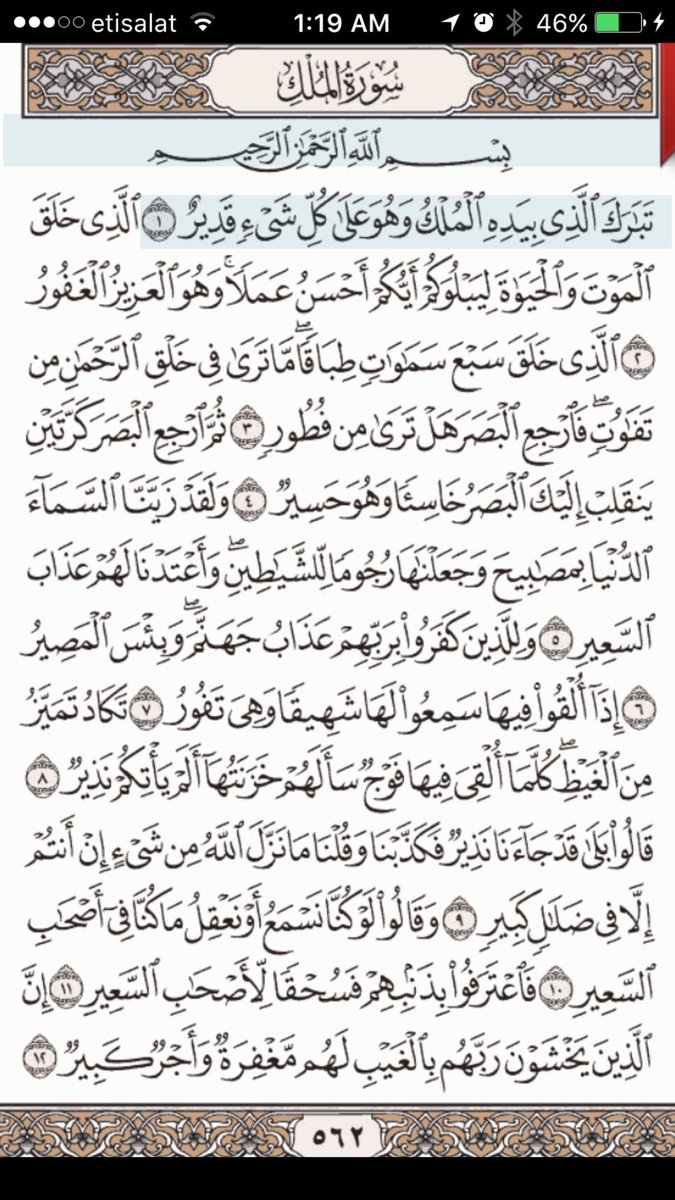 etisalat 1:19 AM 46%
سُورَةُ الْمُلْكِ
بِسْمِ ٱللَّهِ ٱلرَّحْمَٰنِ ٱلرَّحِيمِ
تَبَٰرَكَ ٱلَّذِى بِيَدِهِ ٱلْمُلْكُ وَهُوَ عَلَىٰ كُلِّ شَىْءٍ قَدِيرٌ ١ ٱلَّذِى خَلَقَ
ٱلْمَوْتَ وَٱلْحَيَوٰةَ لِيَبْلُوَكُمْ أَيُّكُمْ أَحْسَنُ عَمَلًا ۚ وَهُوَ ٱلْعَزِيزُ ٱلْغَفُورُ
٢ ٱلَّذِى خَلَقَ سَبْعَ سَمَٰوَٰتٍ طِبَاقًا ۖ مَّا تَرَىٰ فِى خَلْقِ ٱلرَّحْمَٰنِ مِن
تَفَٰوُتٍ ۖ فَٱرْجِعِ ٱلْبَصَرَ هَلْ تَرَىٰ مِن فُطُورٍ ٣ ثُمَّ ٱرْجِعِ ٱلْبَصَرَ كَرَّتَيْنِ
يَنقَلِبْ إِلَيْكَ ٱلْبَصَرُ خَاسِئًا وَهُوَ حَسِيرٌ ٤ وَلَقَدْ زَيَّنَّا ٱلسَّمَآءَ
ٱلدُّنْيَا بِمَصَٰبِيحَ وَجَعَلْنَٰهَا رُجُومًا لِّلشَّيَٰطِينِ ۖ وَأَعْتَدْنَا لَهُمْ عَذَابَ
ٱلسَّعِيرِ ٥ وَلِلَّذِينَ كَفَرُوا۟ بِرَبِّهِمْ عَذَابُ جَهَنَّمَ ۖ وَبِئْسَ ٱلْمَصِيرُ
٦ إِذَآ أُلْقُوا۟ فِيهَا سَمِعُوا۟ لَهَا شَهِيقًا وَهِىَ تَفُورُ ٧ تَكَادُ تَمَيَّزُ
مِنَ ٱلْغَيْظِ ۖ كُلَّمَآ أُلْقِىَ فِيهَا فَوْجٌ سَأَلَهُمْ خَزَنَتُهَآ أَلَمْ يَأْتِكُمْ نَذِيرٌ ٨
قَالُوا۟ بَلَىٰ قَدْ جَآءَنَا نَذِيرٌ فَكَذَّبْنَا وَقُلْنَا مَا نَزَّلَ ٱللَّهُ مِن شَىْءٍ إِنْ أَنتُمْ
إِلَّا فِى ضَلَٰلٍ كَبِيرٍ ٩ وَقَالُوا۟ لَوْ كُنَّا نَسْمَعُ أَوْ نَعْقِلُ مَا كُنَّا فِىٓ أَصْحَٰبِ
ٱلسَّعِيرِ ١٠ فَٱعْتَرَفُوا۟ بِذَنۢبِهِمْ فَسُحْقًا لِّأَصْحَٰبِ ٱلسَّعِيرِ ١١ إِنَّ
ٱلَّذِينَ يَخْشَوْنَ رَبَّهُم بِٱلْغَيْبِ لَهُم مَّغْفِرَةٌ وَأَجْرٌ كَبِيرٌ ١٢
٥٦٢